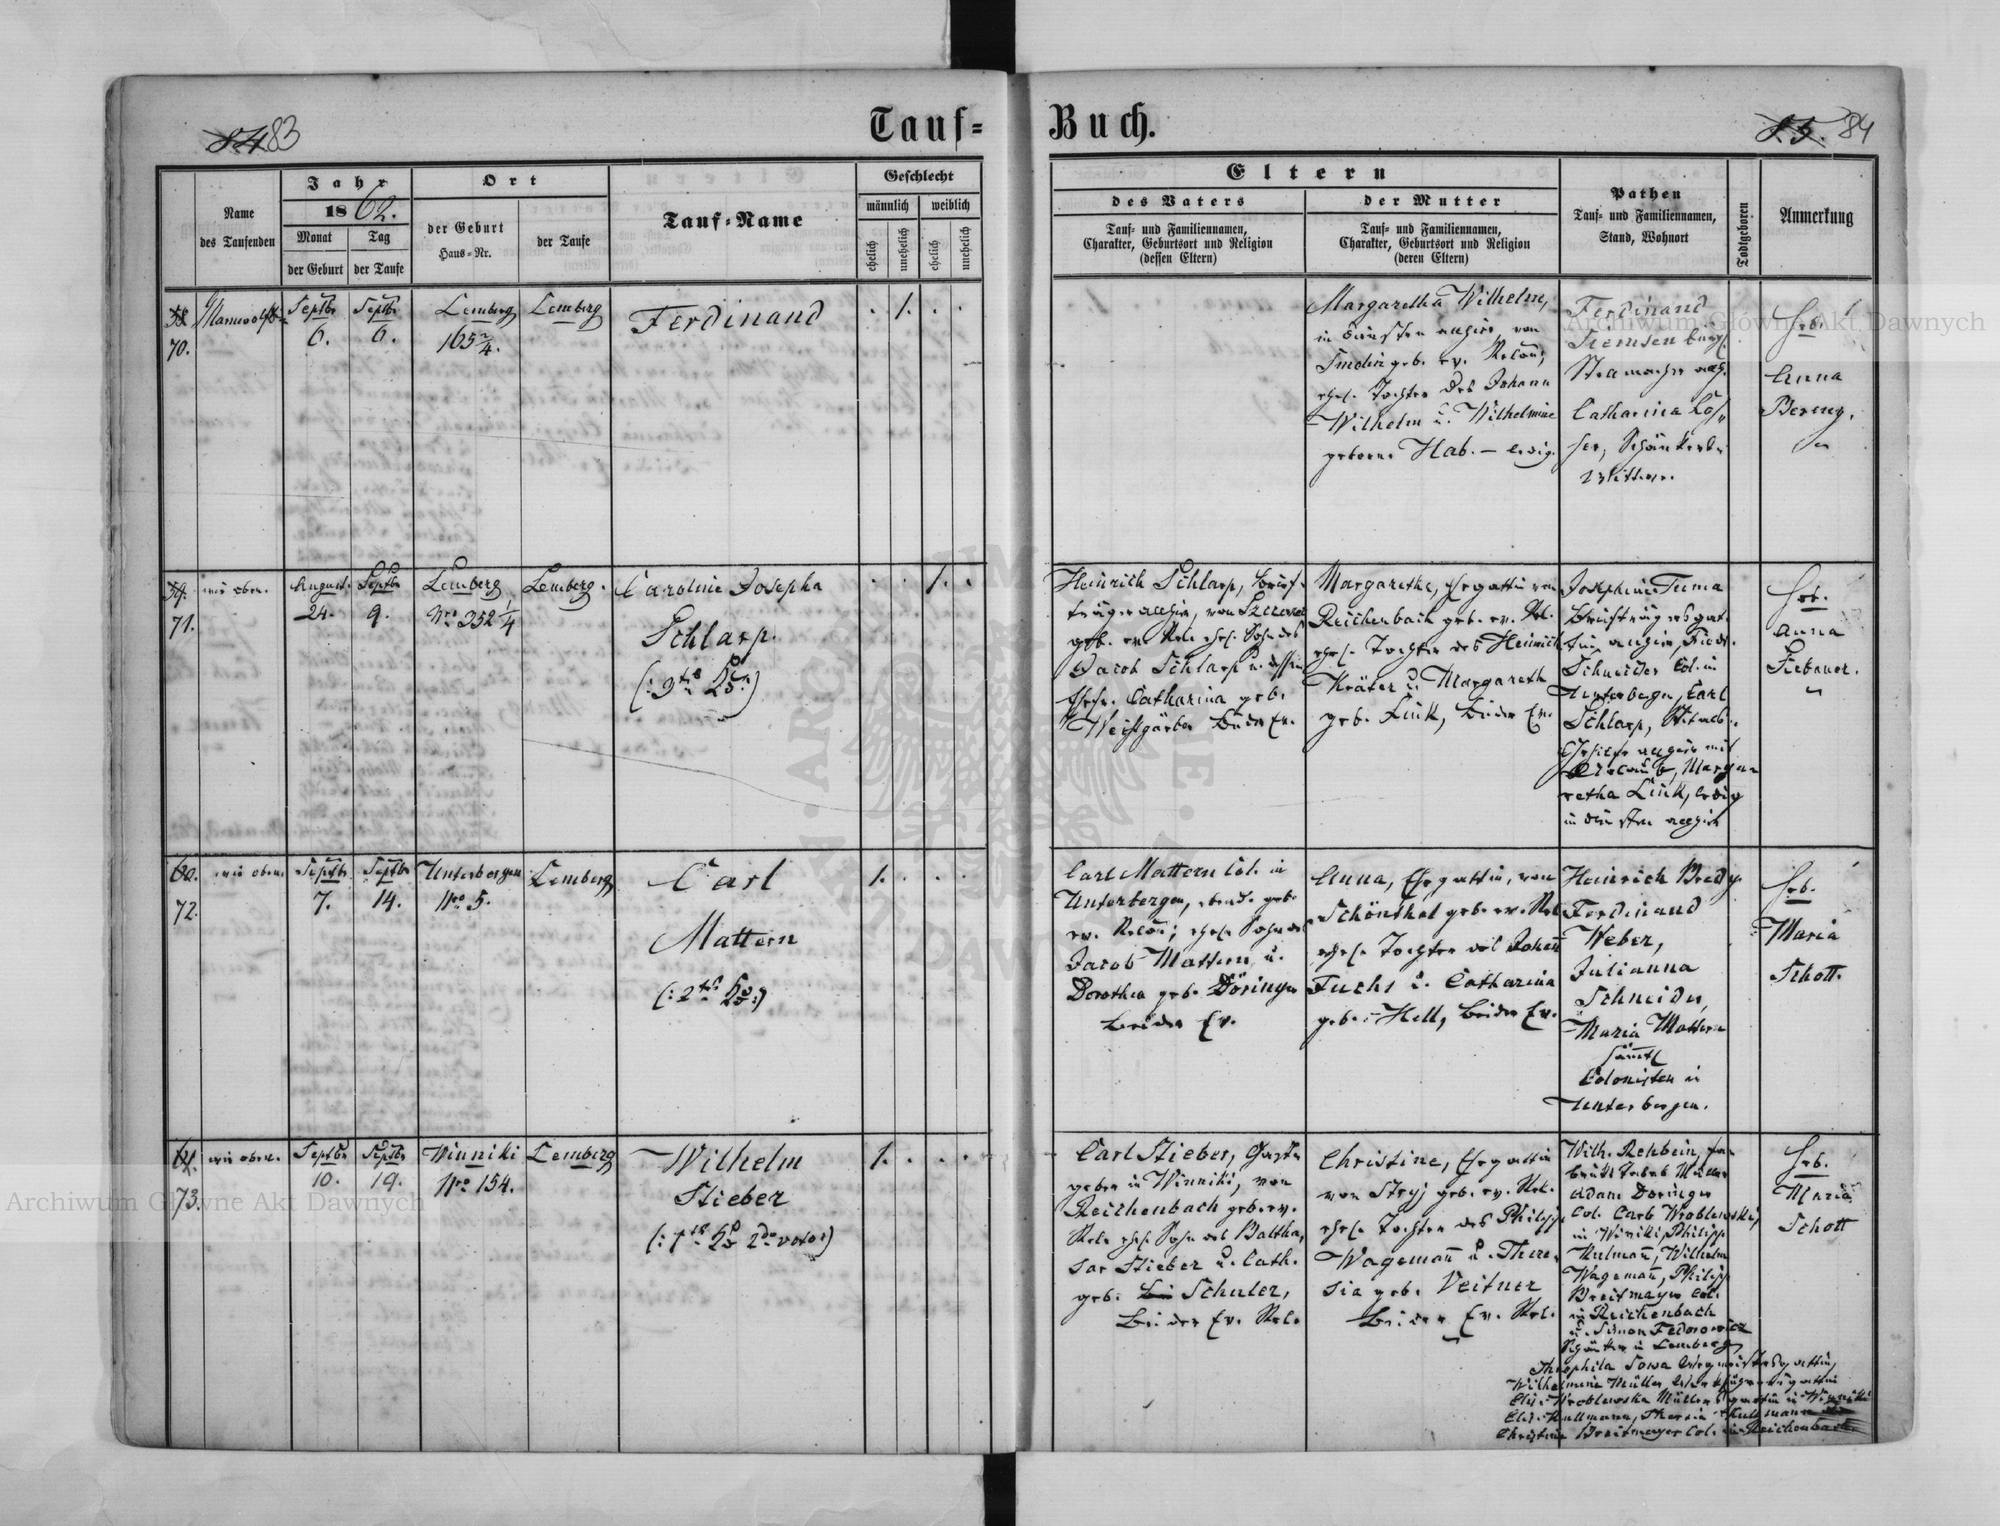 83
Tauf=
Buch.
84
Name
des Taufenden
Jahr
1862.
Monat
der Geburt
Tag
der Taufe
Ort
der Geburt
Haus=Nr.
der Taufe
Tauf=Name
Geschlecht
männlich
weiblich
ehelich
unehelich
ehelich
unehelich
Eltern
des Vaters
Tauf= und Familiennamen,
Charakter, Geburtsort und Religion
(dessen Eltern)
der Mutter
Tauf= und Familiennamen,
Charakter, Geburtsort und Religion
(deren Eltern)
Pathen
Tauf= und Familiennamen,
Stand, Wohnort
Todtgeboren
Anmerkung
70.
Septbr
6.
Septbr
6.
Lemberg
165 2/4.
Lemberg
Ferdinand
1.
Margaretha Wilhelm,
in Diensten allhier, von
geb. ev. Relon;
ehel. Tochter des Johann
Wilhelm u. Wilhelmine
geborne Hab. — ledig.
Ferdinand
Catharina
Heb.
Anna
Archiwum Główne Akt Dawnych
71.
wie oben.
August.
24.
Septbr
9.
Lemberg
Nro 352 1/4
Lemberg.
Carolnie Josepha
Schlarp.
1.
Heinrich Schlarp, Brief-
träger allhier, von
geb. ev. Rel. ehel. Sohn des
Jacob Schlarp u. dessen
Ehefr. Catharina geb.
Weißgärber beide Ev.
Margarethe, Ehegattin von
Reichenbach geb. ev. Rel.
ehel. Tochter des Heinrich
Kräter u. Margareth
geb. Link, beide Ev.
Josephine Tuma
Briefträgersgat-
tin allhier,
Schneider Col. in
Unterbergen, Carl
Schlarp,
allhier mit
Marga-
retha Link, ledig
in Diensten allhier
Heb.
Anna
72.
wie oben.
Septbr
7.
Septbr
14.
Unterbergen
Nro 5.
Lemberg
Carl
Mattern
1.
Carl Mattern Col. in
Unterbergen, ebend. geb.
ev. Relon; ehel. Sohn des
Jacob Mattern u.
Dorothea geb. Döringer
beide Ev.
Anna, Ehegattin, von
Schönthal geb. ev. Rel
ehel. Tochter des Johann
Fuchs u. Catharina
geb. Hell, beide Ev.
Heinrich Bredy
Ferdinand
Weber,
Julianna
Schneider,
Maria Mattern
sämtl
Colonisten in
Unterbergen.
Heb.
Maria
Schott.
73.
wie oben.
Septbr
10.
Septbr
19.
Winniki
Nro 154.
Lemberg
Wilhelm
Stieber
1.
Carl Stieber, Gast-
geber in Winniki, von
Reichenbach geb. ev.
Rel. ehel. Sohn des Baltha-
sar Stieber u. Cath.
geb. Schuler,
beide Ev. Rel.
Christine, Ehegattin
von Stryj geb. ev. Rel.
ehel. Tochter des Philipp
Wagemann u. There-
sia geb. Veitner
beide Ev. Rel.
Wilh. Rehbein,
Adam Doringer
Col. Carl Wroblewski,
in Winniki, Philipp
Kulmann, Wilhelm
Wagemann, Philipp
Breitmayer Col.
in Reichenbach
u. Simon Fedorowicz
in Lemberg
Theophila Sowa
Wilhelmine Müller
Elis. Wroblewska Müllersgattin in Winniki
Elis. Kullmann, Theresia Kullmann
Christine Breitmayer Col. in Reichenbach
Heb.
Maria
Schott
Archiwum Główne Akt Dawnych